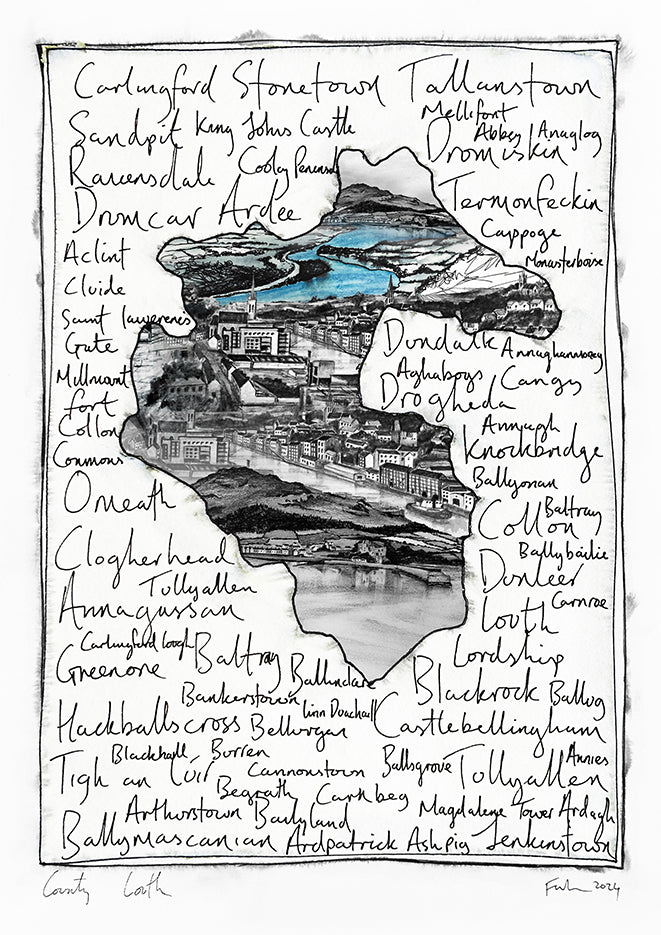 Carlingford Stonetown Tallanstown
Mellifont
Abbey Anaglog
Sandpit King Johns Castle
Dromiskin
Ravensdale Cooley Peninsula
Dromcar Ardee
Termonfeckin
Cappoge
Monasterboise
Aclint
Cluide
Saint lawerences
Gate
Millmount
fort
Collon
Commons
Omeath
Dundalk
Aghaboys Cangy
Drogheda
Annagh
Knockbridge
Ballyonan
Baltray
Collon
Ballybailie
Dunleer
Carnroe
Louth
Lordship
Clogherhead
Tullyallen
Annagassan
Carlingford lough
Greenore Baltray
Blackrock Ballug
Bankerstown Linn Duachaill
Hackballscross Bellurgan Castlebellingham
Blackhall Burren
Tigh an Cannonstown Ballsgrove Tullyallen
Annies
Begrath
Arthurstown Bailyland Magdalene Tower Ardagh
Ballymascanlan Ardpatrick Ashpig Jenkinstown
County Louth
2024